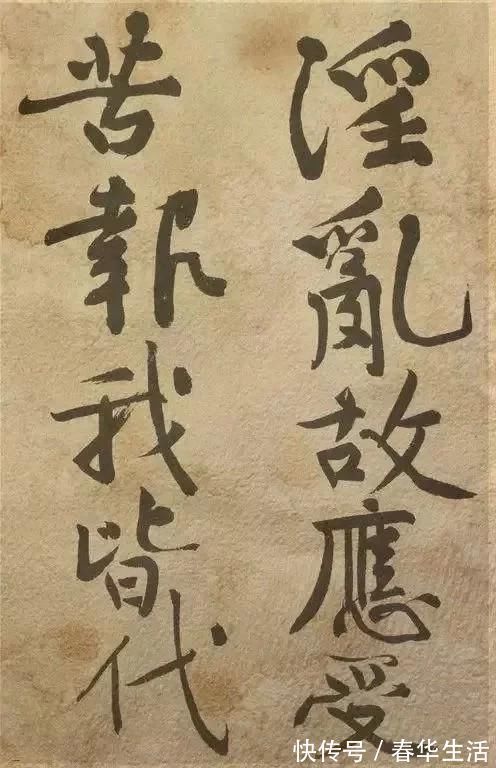 淫亂故應受
苦報我皆代
快传号 / 春华生活